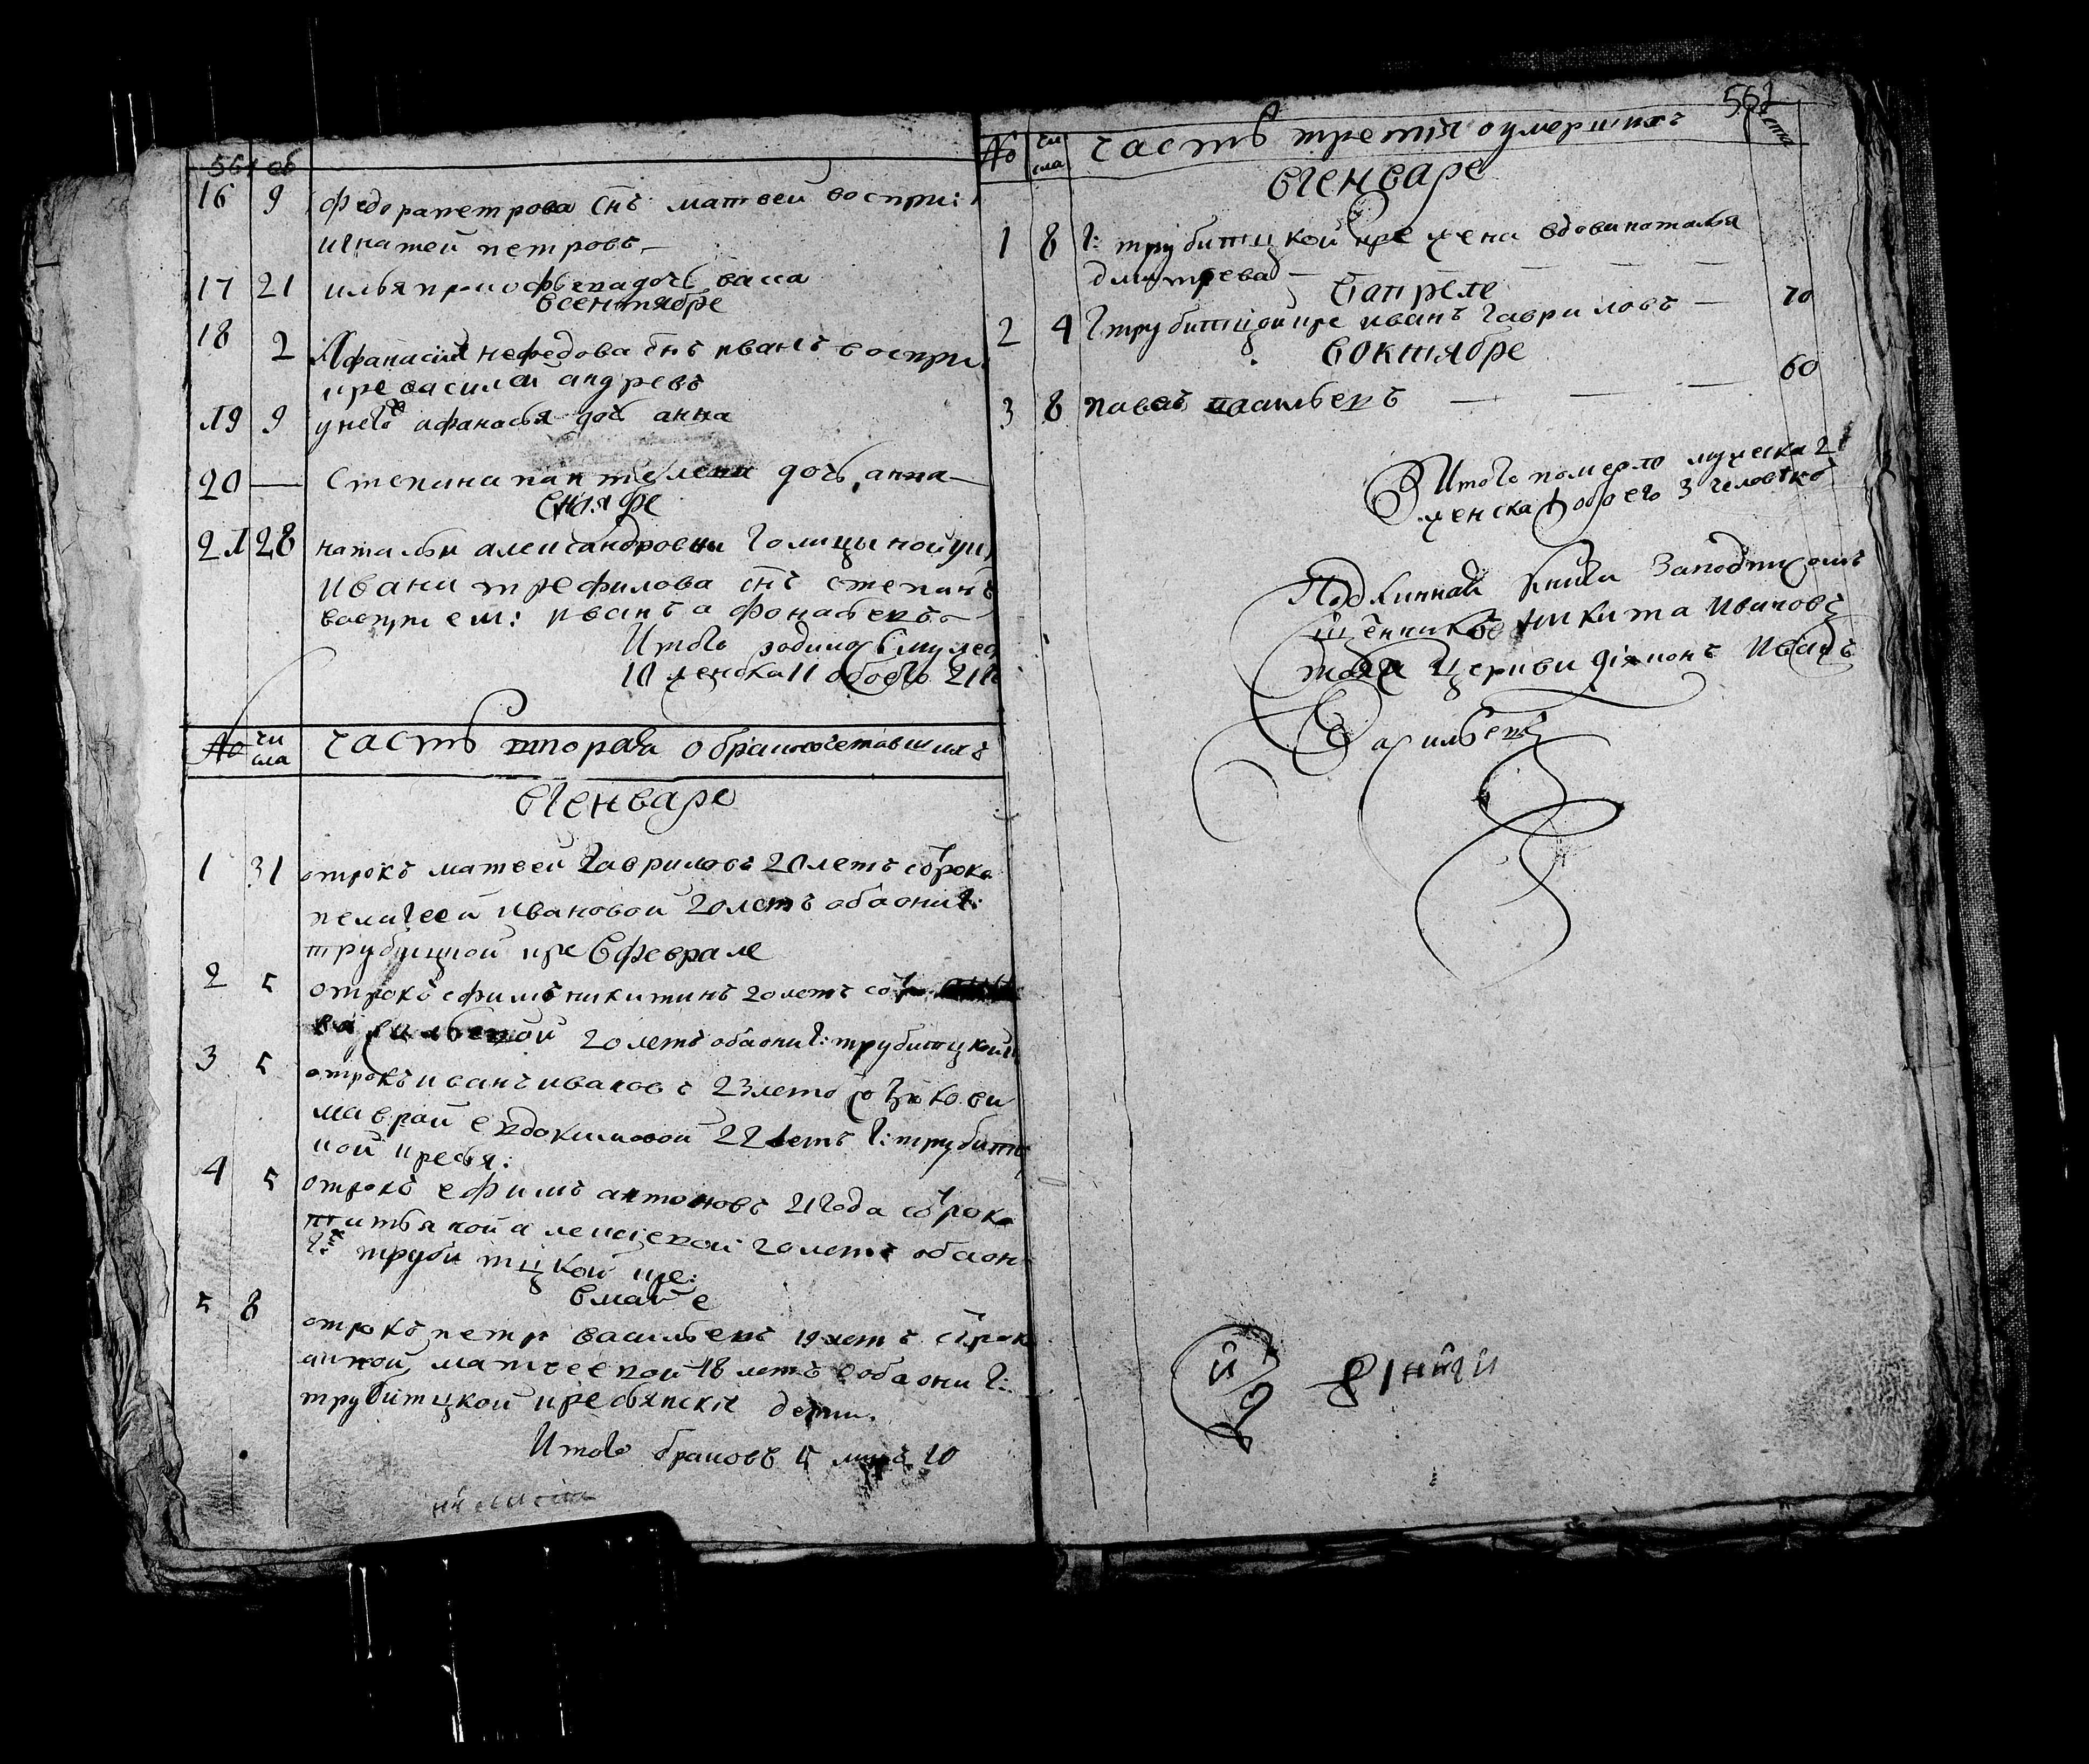 561 об
16 9 Федора петрова снъ матвеи воспри:
игнатей петровъ
17 21 илья прокофьева дочь васса
в сентябре
18 2 Афанасия нефедова снъ иванъ воспри
кре василей андревъ
19 9 у него афанасья дочь анна
20 — Степана пантелеева дочь анна
в ноябре
21 28 натальи александровны голицыной
Ивана трефилова снъ степанъ
восприем: иванъ афонасьевъ
Итого родилось муска
10 женска 11 обоего 21
№ чи сла часть вторая о бракосочетавшихъ
в генваре
1 31 отрокъ матвей гавриловъ 20 летъ с отрока
пелагеей ивановой 20 летъ оба они г:
трубицкой кре в феврале
2 5 отрокъ ефимъ никитинъ 20 летъ
васильевой 20 летъ оба они г: трубитцкой
3 5 отрокъ иванъ ивановъ 23 лето
маврой евдокимовой 22 летъ г: трубит
кой кресья:
4 5 отрокъ ефимъ антоновъ 21 года с отрока
алексеевой 20 летъ оба они
г: трубитцкой кре:
в маие
5 8 отрокъ петръ васильевъ 19 летъ с отрок
анной матвеевой 18 летъ оба они г:
трубитцкой кресьянские дети.
Итого браковъ 5 10
562
№ чи сла часть третия о умершихъ лета
в генваре
1 8 г: трубитцкой кре жена вдова наталья
дмитрева
в апреле 70
2 4 г трубитцкой кре иванъ гавриловъ
в октябре 60
3 8 павелъ васильевъ
Итого померло мужеска 2
женска 1 обоего 3 человека
Подлинная книга за подписомъ
щенникъ никита Ивановъ
тоя церкви диаконъ Иванъ
Васильевъ